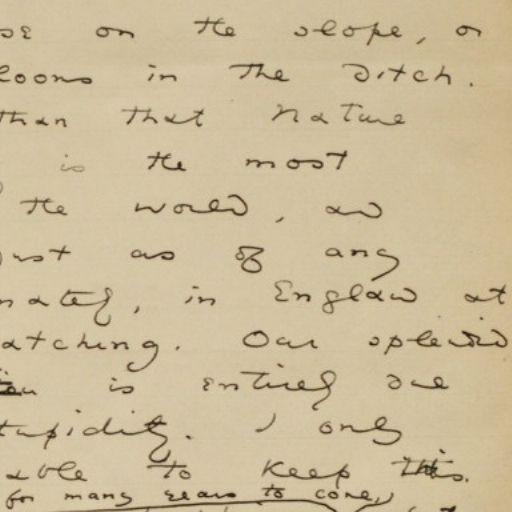 se on the slope, or
looms in the ditch.
than that Nature
is the most
the world, and
just as of any
nately, in England at
atching. Our splendid
is entirely due
tupidity. I only
able to keep this.
for many years to come,